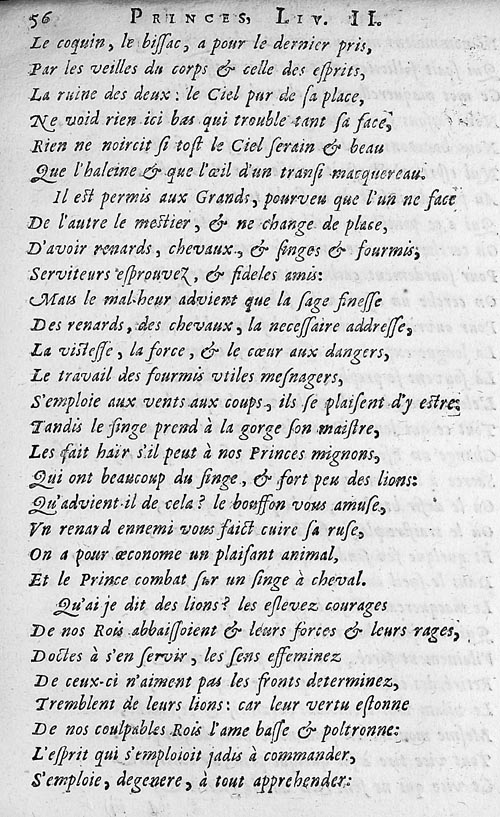 56 PRINCES, LIV. II.
Le coquin, le bissac, a pour le dernier pris,
Par les veilles du corps & celle des esprits,
La ruine des deux: le Ciel pur de sa place,
Ne void rien ici bas qui trouble tant sa face,
Rien ne noircit si tost le Ciel serain & beau
Que l'haleine & que l'œil d'un transi macquereau.
Il est permis aux Grands, pourveu que l'un ne face
De l'autre le mestier, & ne change de place,
D'avoir renards, chevaux, & singes & fourmis,
Serviteurs esprouvez, & fideles amis:
Mais le mal-heur advient que la sage finesse
Des renards, des chevaux, la necessaire addresse,
La vistesse, la force, & le cœur aux dangers,
Le travail des fourmis utiles mesnagers,
S'emploie aux vents aux coups, ils se plaisent d'y estre:
Tandis le singe prend à la gorge son maistre,
Les fait hair s'il peut à nos Princes mignons,
Qui ont beaucoup du singe, & fort peu des lions:
Qu'advient-il de cela? le bouffon vous amuse,
Vn renard ennemi vous faict cuire sa ruse,
On a pour œconome un plaisant animal,
Et le Prince combat sur un singe à cheval.
Qu'ai je dit des lions? les eslevez courages
De nos Rois abbaissoient & leurs forces & leurs rages,
Doctes à s'en servir, les sens effeminez
De ceux-ci n'aiment pas les fronts determinez,
Tremblent de leurs lions: car leur vertu estonne
De nos coulpables Rois l'ame basse & poltronne:
L'esprit qui s'emploioit jadis à commander,
S'emploie, degenere, à tout apprehender: